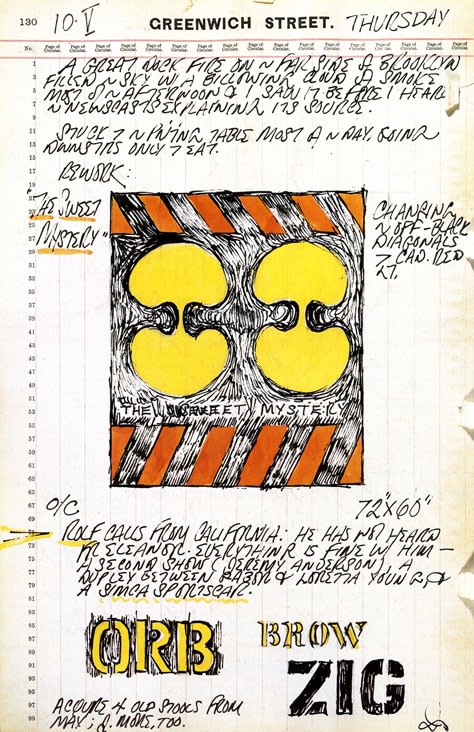 130 10·V GREENWICH STREET. THURSDAY
No. Page of Circular. Page of Circular. Page of Circular. Page of Circular. Page of Circular. Page of Circular. Page of Circular. Page of Circular. Page of Circular. Page of Circular.
A GREAT DOCK FIRE ON FAR SIDE BROOKLYN
FILLS SKY W/ A BILLOWING CLOUD SMOKE
MOST AFTERNOON & I SAW IT BEFORE I HEARD
NEWSCASTS EXPLAINING ITS SOURCE.
STUCK TABLE MOST DAY, GOING
DOWNSTRS ONLY EAT.
REWORK:
"THE SWEET
MYSTERY"
CHANGING
OFF-BLACK
DIAGONALS
CAD. RED
LT.
THE SWEET MYSTERY
O/C 72"X60"
ROLF CALLS FROM CALIFORNIA: HE HAS NOT HEARD
FR. ELEANOR. EVERYTHING IS FINE W/ HIM —
A SECOND SHOW (JEREMY ANDERSON), A
DUPLEX BETWEEN GABOR & LORETTA YOUNG, &
A SIMCA SPORTSCAR.
ORB BROW
ZIG
ACQUIRE 4 OLD STOOLS FROM
MAX; 2 MORE, TOO.
1
3
5
7
9
11
13
15
17
19
21
23
25
27
29
31
33
35
37
39
41
43
45
47
49
51
53
55
57
59
61
63
65
67
69
71
73
75
77
79
81
83
85
87
89
91
93
95
97
99